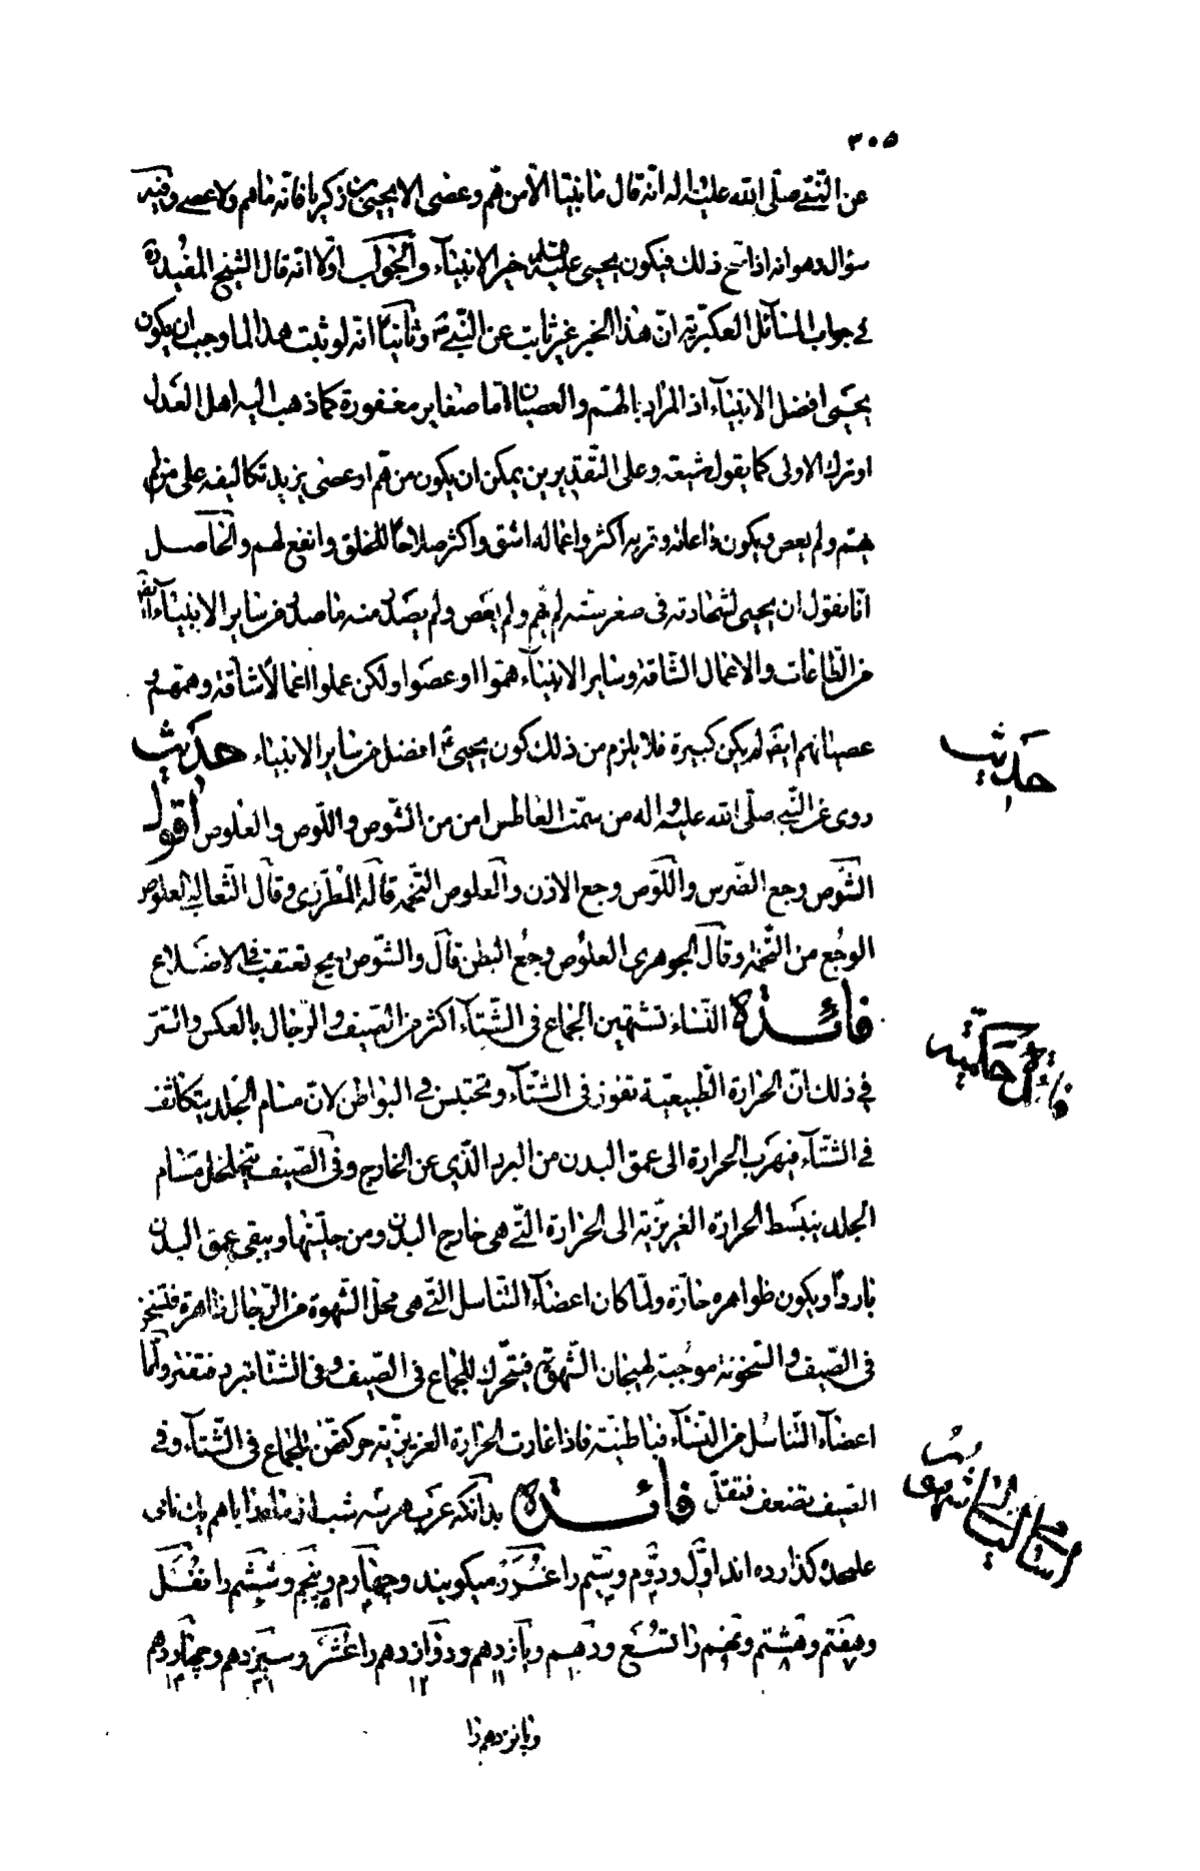 ٣٠٥
عن النّبيّ صلّى الله عليه واله انه قال ما نبيّنا الّا من همّ وعصى الا يحيى بن زكريا فانّه ما هم ولا عصى وفيه
سؤال وهو انه اذا صحّ ذلك فيكون يحيى عليه السّلم خير الانبيآء والجواب اوّلا انّه قال الشيخ المفيد ره
في جواب المسآئل العكبريّة انّ هذا الخبر غير ثابت عن النّبيّ ص وثانيا انّه لو ثبت هذا لما وجب ان يكون
يحيى افضل الانبيآء اذ المراد بالهمّ والعصيان امّا صغاير مغفورة كما ذهب اليه اهل العدل
او ترك الاولى كما يقول شيعته وعلى التّقديرين يمكن ان يكون من همّ او عصى يزيد تكاليفه على من لم
يهتم ولم يعص ويكون طاعاته وقربه اكثر واعماله اشق واكثر صلاحا للخلق وانفع لهم والحاصل
انّا نقول ان يحيى لشهادته فى صغر سنّه لم يهم ولم يعص ولم يصدر منه ما صدر من ساير الانبيآء ايضا
من الطّاعات والاعمال الشّاقة وساير الانبيآء همّوا او عصوا ولكن عملوا اعمالا شاقة وهمّهم و
عصيانهم ايضا لم يكن كبيرة فلا يلزم من ذلك كون يحيى ع افضل من ساير الانبياء حديث
حديث
روى عن النّبي صلّى الله عليه واله من سمّت العاطس امن من الشّوص واللّوص والعلوص اقول
الشّوص وجع الضّرس واللّوص وجع الاذن والعلوص التّخمه قاله المطرّزى وقال الثّعالبي العلوص
الوجع من التّخمة وقال الجوهرى العلوص وجع البطن قال والشّوص ريح تعتقب في الاضلاع
فائدة النّساء تشتهين الجماع فى الشّتآء اكثر من الصّيف والرّجال بالعكس والسّر
فائدة حكميّة
في ذلك انّ الحرارة الطّبيعيّة تفوز فى الشّتآء وتحتبس في البواطن لانّ مسام الجلد يتكاثف
في الشّتآء فيهرب الحرارة الى عمق البدن من البرد الّذى عن الخارج وفى الصّيف يتخلخل مسام
الجلد ينبسط الحرارة الغريزّية الى الحرارة الّتي هى خارج البدن ومن جلّيتها ويبقى عمق البدن
باردا ويكون ظواهره حارّة ولمّا كان اعضآء التّناسل الّتي هى محلّ الشّهوة من الرّجال ظاهرة فتسخن
فى الصّيف والسّخونة موجبة لهيجان الشّهوة فيتحرّك للجماع فى الصّيف وفى الشّتا تبرد فتفتر وامّا
اعضآء التّناسل من النّسآء فباطنيّة فاذا غارت الحرارة الغريزيّة حركتهنّ للجماع فى الشّتآء وفي
الصّيف تضعف فتقلّ فائدة بدانكه عرب هر سه شب از ماه را باهم يك نامى
اسامى ليالى شهور
عليحده گذارده اند اوّل ودوّم وسيّم را غرر ميكويند وچهارم وپنجم وششم را نفل
وهفتم وهشتم ونهم را تسع ودهم ويازدهم ودوازدهم را عشر وسيزدهم وچهاردهم
وپانزدهم را